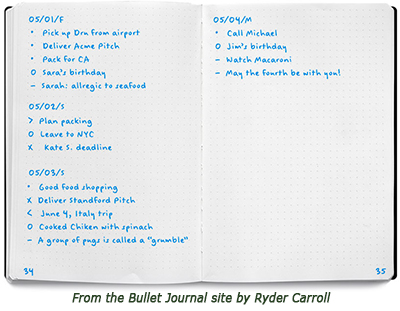 05/01/F
• Pick up Drn from airport
• Deliver Acme Pitch
• Pack for CA
O Sara's birthday
– Sarah: allregic to seafood
05/02/S
> Plan packing
O Leave to NYC
x Kate S. deadline
05/03/S
• Good food shopping
x Deliver Standford Pitch
< June 4, Italy trip
O Cooked Chiken with spinach
– A group of pugs is called a "grumble"
34
05/04/M
• Call Michael
O Jim's birthday
– Watch Macaroni
– May the fourth be with you!
35
From the Bullet Journal site by Ryder Carroll